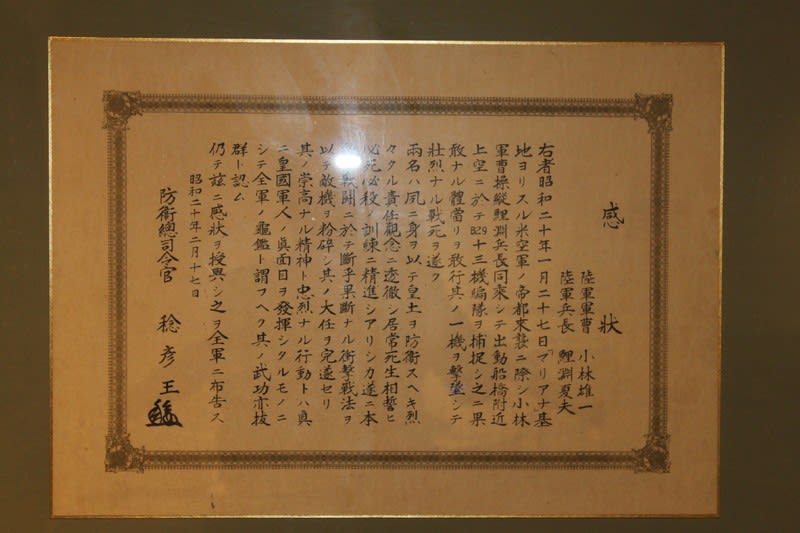 感狀
陸軍軍曹 小林雄一
陸軍兵長 鯉淵夏夫
右者昭和二十年一月二十七日「マリアナ」基
地ヨリスル米空軍ノ帝都來襲ニ際シ小林
軍曹操縱鯉淵兵長同乘シテ出動船橋附近
上空ニ於テB29十三機編隊ヲ捕捉シ之ニ果
敢ナル體當リヲ敢行其ノ一機ヲ擊墜シテ
壯烈ナル戰死ヲ遂ク
兩名ハ夙ニ身ヲ以テ皇土ヲ防衞スヘキ烈
々タル責任觀念ニ透徹シ居常死生相誓ヒ
必死必殺ノ訓練ニ精進シアリシカ遂ニ本
戰鬪ニ於テ斷乎果斷ナル衝擊戰法ヲ
以テ敵機ヲ粉碎シ其ノ大任ヲ完遂セリ
其ノ崇高ナル精神ト忠烈ナル行動トハ眞
ニ皇國軍人ノ眞面目ヲ發揮シタルモノニ
シテ全軍ノ龜鑑ト謂フヘク其ノ武功亦拔
群ト認ム
仍テ玆ニ感狀ヲ授與シ之ヲ全軍ニ布告ス
昭和二十年二月十七日
防衞總司令官 稔彥王